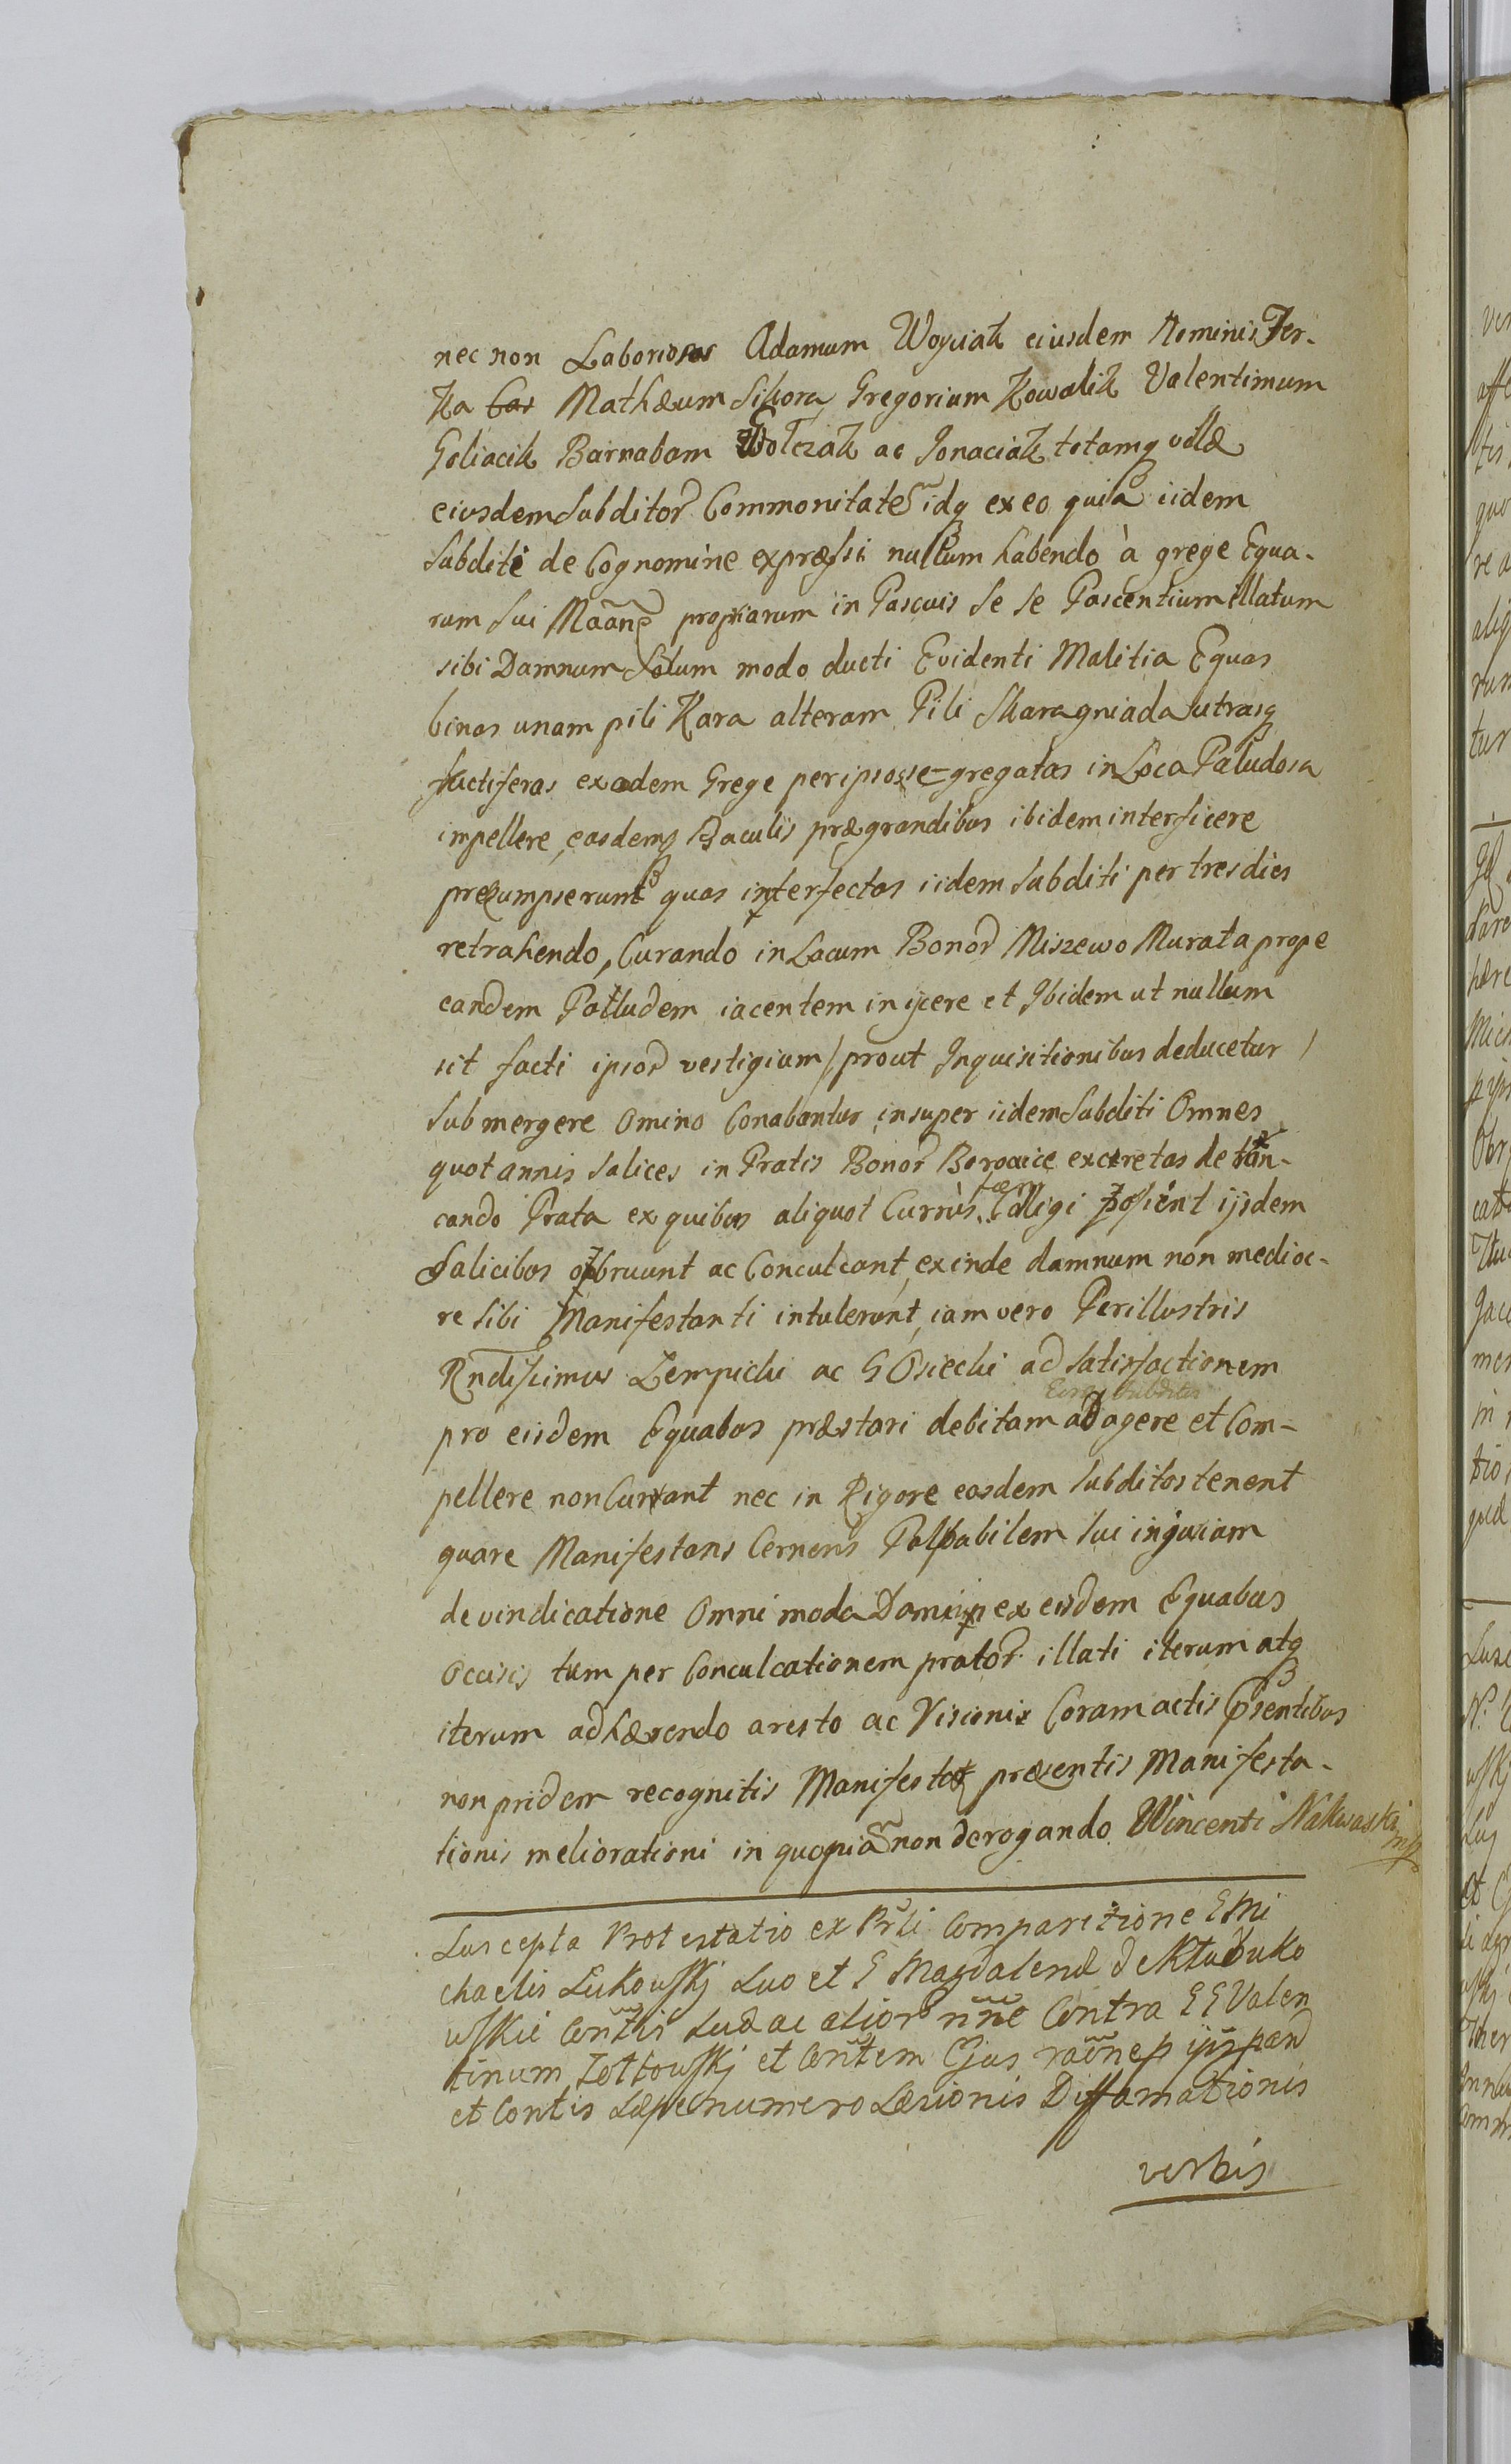 nec non Laboriosos Adamum Woyciak eiusdem Nominis Fer-
ka Mathæum Sikora Gregorium Kowalik Valentimum
Goliacik Barnabam Wolczak ac Ignaciak totamq villæ
eiusdem Subditor Commonitate idq ex eo quia iidem
Subditi de Cognomine expræssi nullum habendo à grege Equa-
rum sui Maãne propriarum in Pascuis se se Pascentium illatum
sibi Damnum Solum modo ducti Evidenti Malitia Equas
binas unam pili Kara alteram Pili Skaragniada utrasq
fructiferas ex eadem Grege per ipsos se=gregatas in Loca Paludosa
impellere, easdemq Baculis prægrandibus ibidem interficere
prezumpserunt quas interfectas iidem subditi per tres dies
retrahendo, Curando in Lacum Bonor Miszewo Murata prope
eandem Palludem iacentem inijcere et Ibidem ut nullum
sit facti ipsor vestigium / prout Inquisitionibus deducetur /
submergere Omino Conabantur insuper iidem Subditi Omnes
quot annis Salices in Pratis Bonor Borowice excretas detan-
cando Prata ex quibus aliquot Currùs fæni Colligi possent ijsdem
Salicibus obruunt ac Conculcant, exinde damnum non medioc-
re sibi Manifestanti intulerunt, iam vero Perillustris
Rndissimus Lempicki ac G Osiecki ad satisfactionem
pro eisdem Equabus præstari debitam Eosd Subditos adagere et Com-
pellere non Curant nec in Rigore eosdem subditos tenent
quare Manifestans Cernens Palpabilem sui injuriam
de vindicatione Omni moda Damni ex eisdem Equabus
Occisis tum per Conculcationem prator illati iterum atq
iterum adhærendo aresto ac Visioni Coram actis Psentibus
non pridem recognitis Manifestat præsentis Manifesta-
tionis meliorationi in quopiam non derogando Wincenti Nakwaski mp
Suscepta Protestatio ex Prli Comparitione G Mi
chaelis Lukowskj Suo et G Magdalenæ de
wskie Contis Suæ ac alior nne Contra GG Valen
tinum Zoltowskj et Contem Ejus raõne p
et Contis sæpe numero Læsionis Diffamationis
verbis